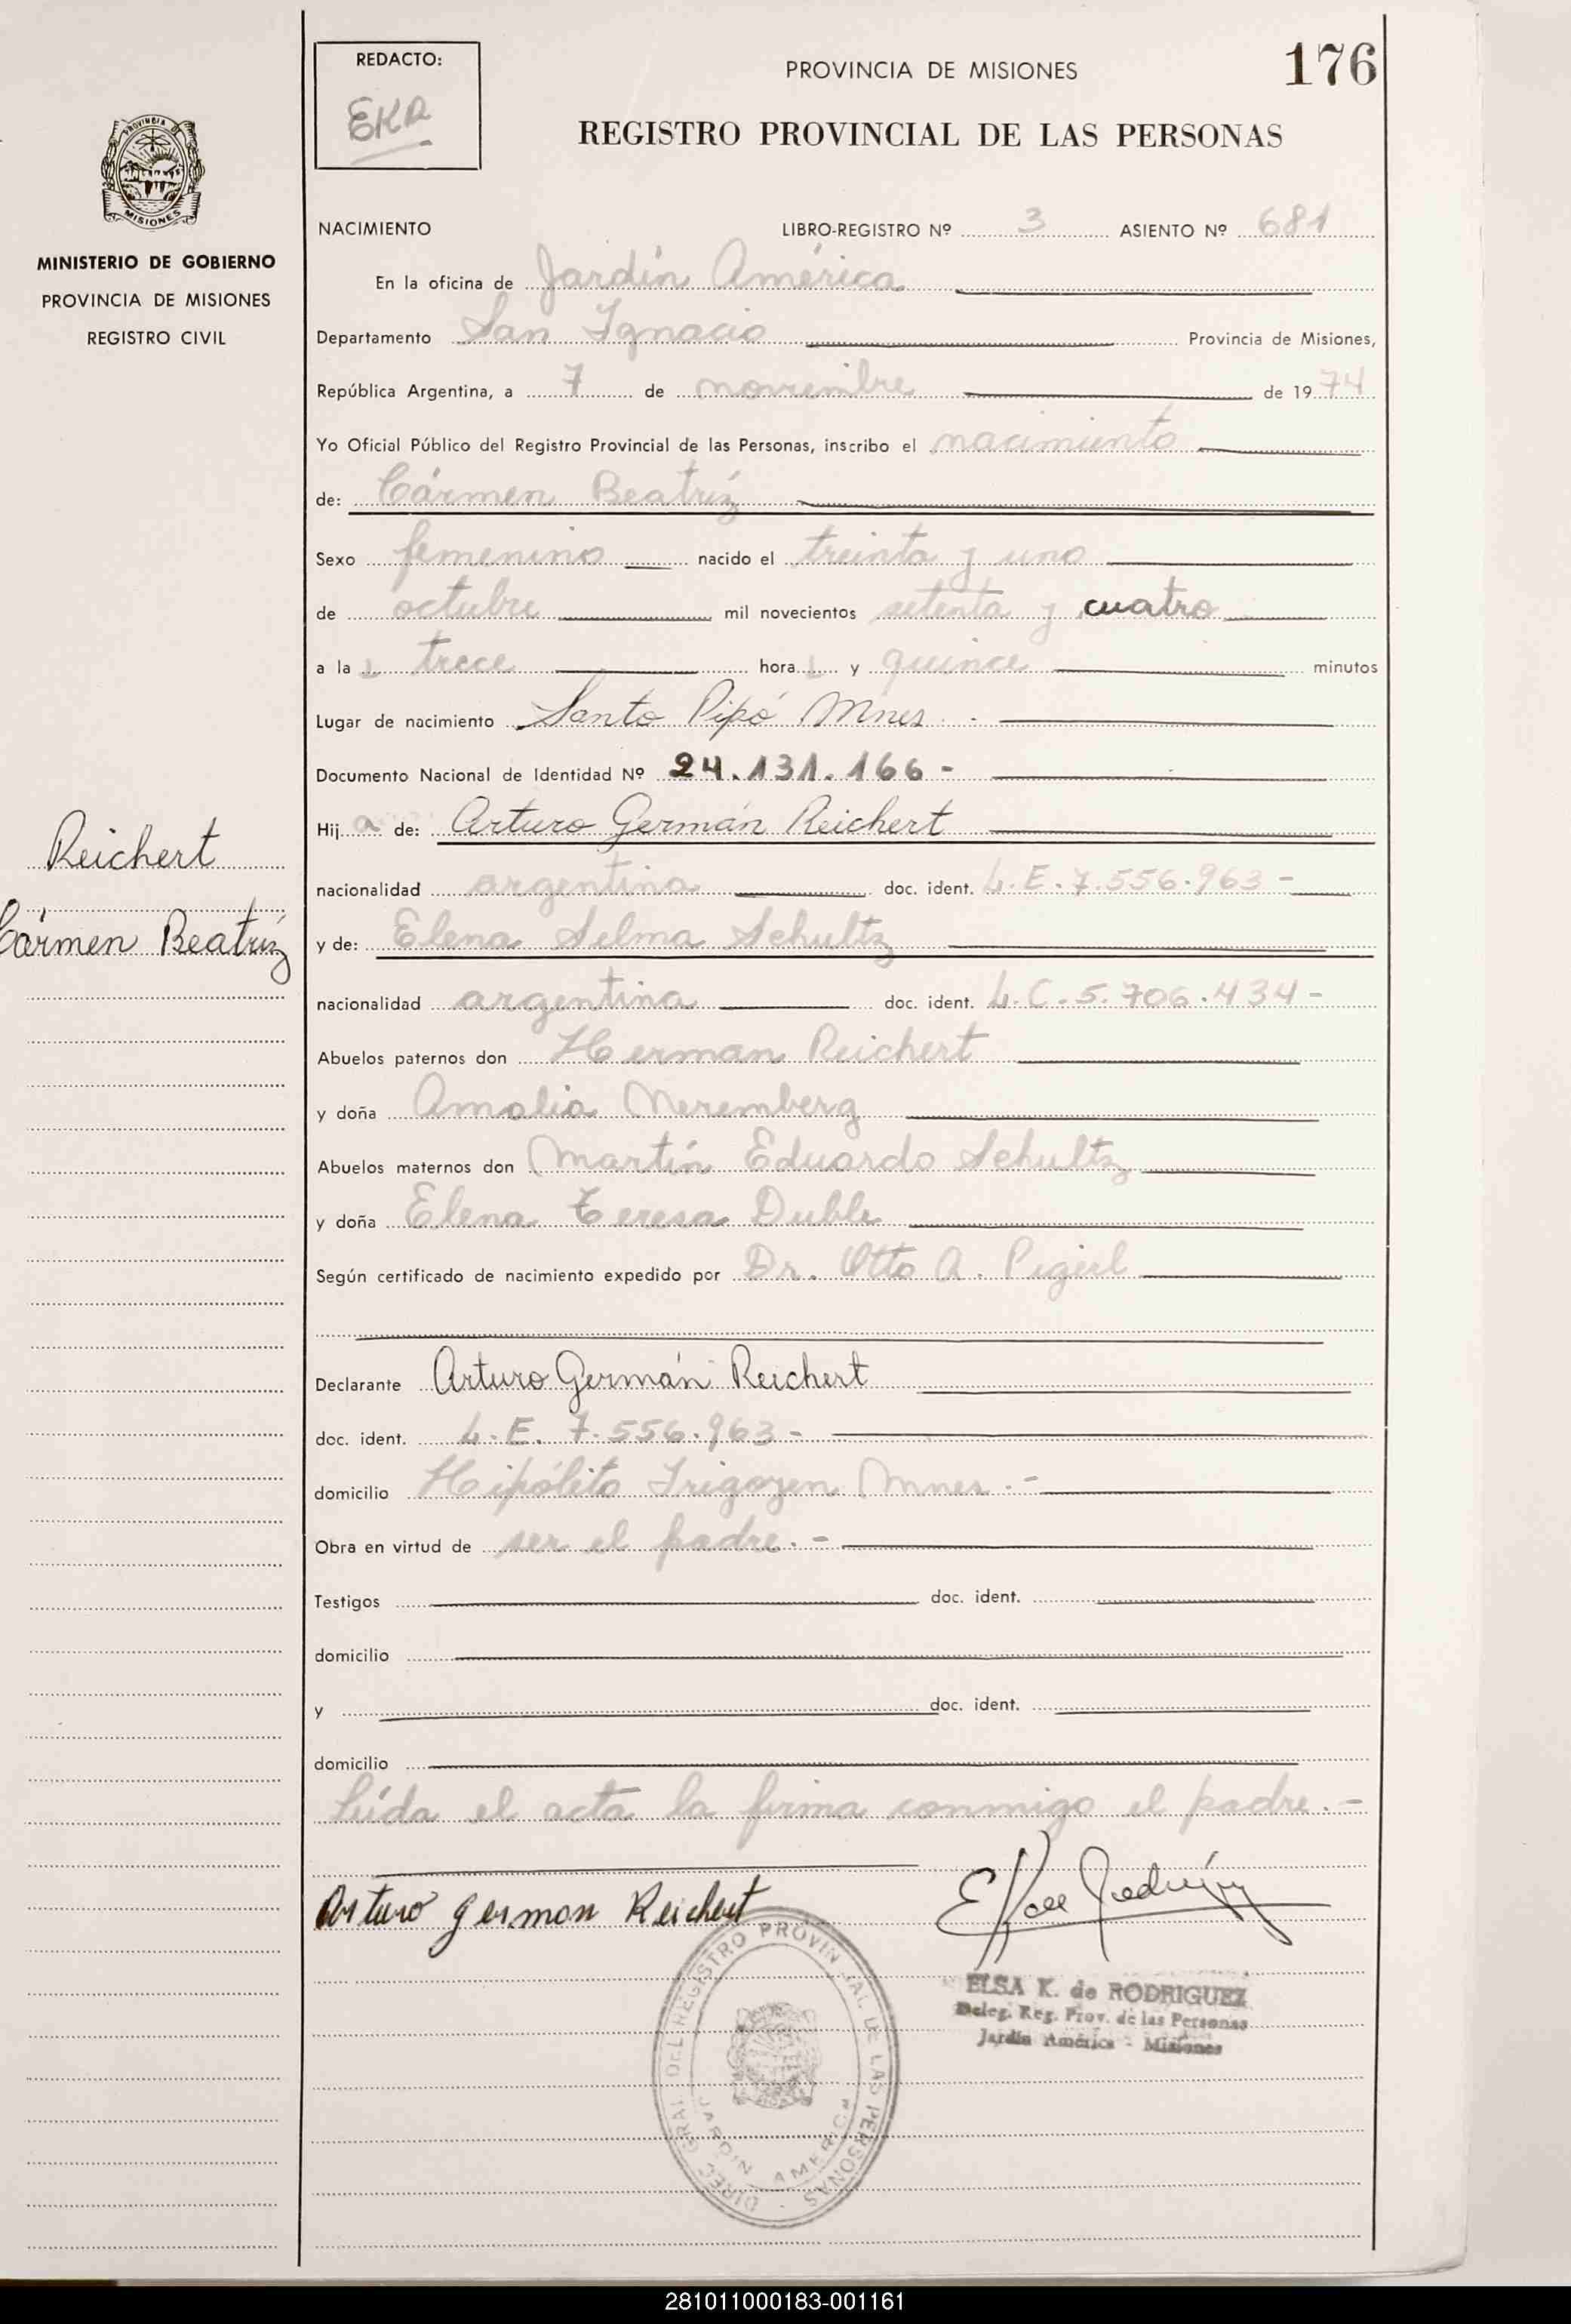 REDACTO:
EKR
PROVINCIA DE MISIONES
176
REGISTRO PROVINCIAL DE LAS PERSONAS
PROVINCIA DE
MISIONES
MINISTERIO DE GOBIERNO
PROVINCIA DE MISIONES
REGISTRO CIVIL
NACIMIENTO LIBRO-REGISTRO Nº 3 ASIENTO Nº 681
En la oficina de Jardín América
Departamento San Ignacio Provincia de Misiones,
República Argentina, a 7 de noviembre de 1974
Yo Oficial Público del Registro Provincial de las Personas, inscribo el nacimiento
de: Cármen Beatríz
Sexo femenino nacido el treinta y uno
de octubre mil novecientos setenta y cuatro
a la s trece hora s y quince minutos
Lugar de nacimiento Santo Pipó Mnes.-
Documento Nacional de Identidad Nº 24.131.166-
Hij a de: Arturo Germán Reichert
Reichert
nacionalidad argentina doc. ident. L.E.7.556.963-
Cármen Beatríz
y de: Elena Selma Schultz
nacionalidad argentina doc. ident. L.C.5.706.434-
Abuelos paternos don Herman Reichert
y doña Amalia Neremberg
Abuelos maternos don Martín Eduardo Schultz
y doña Elena Teresa Duble
Según certificado de nacimiento expedido por Dr. Otto A.
Declarante Arturo Germán Reichert
doc. ident. L.E. 7.556.963-
domicilio Hipólito Irigoyen Mnes.-
Obra en virtud de ser el padre.-
Testigos doc. ident.
domicilio
y doc. ident.
domicilio
Leída el acta la firma conmigo el padre.-
Arturo German Reichert
ELSA K. de RODRIGUEZ
Deleg. Reg. Prov. de las Personas
Jardín América - Misiones
DIREC. GRAL. DEL REGISTRO PROVINCIAL DE LAS PERSONAS
JARDIN AMERICA
281011000183-001161